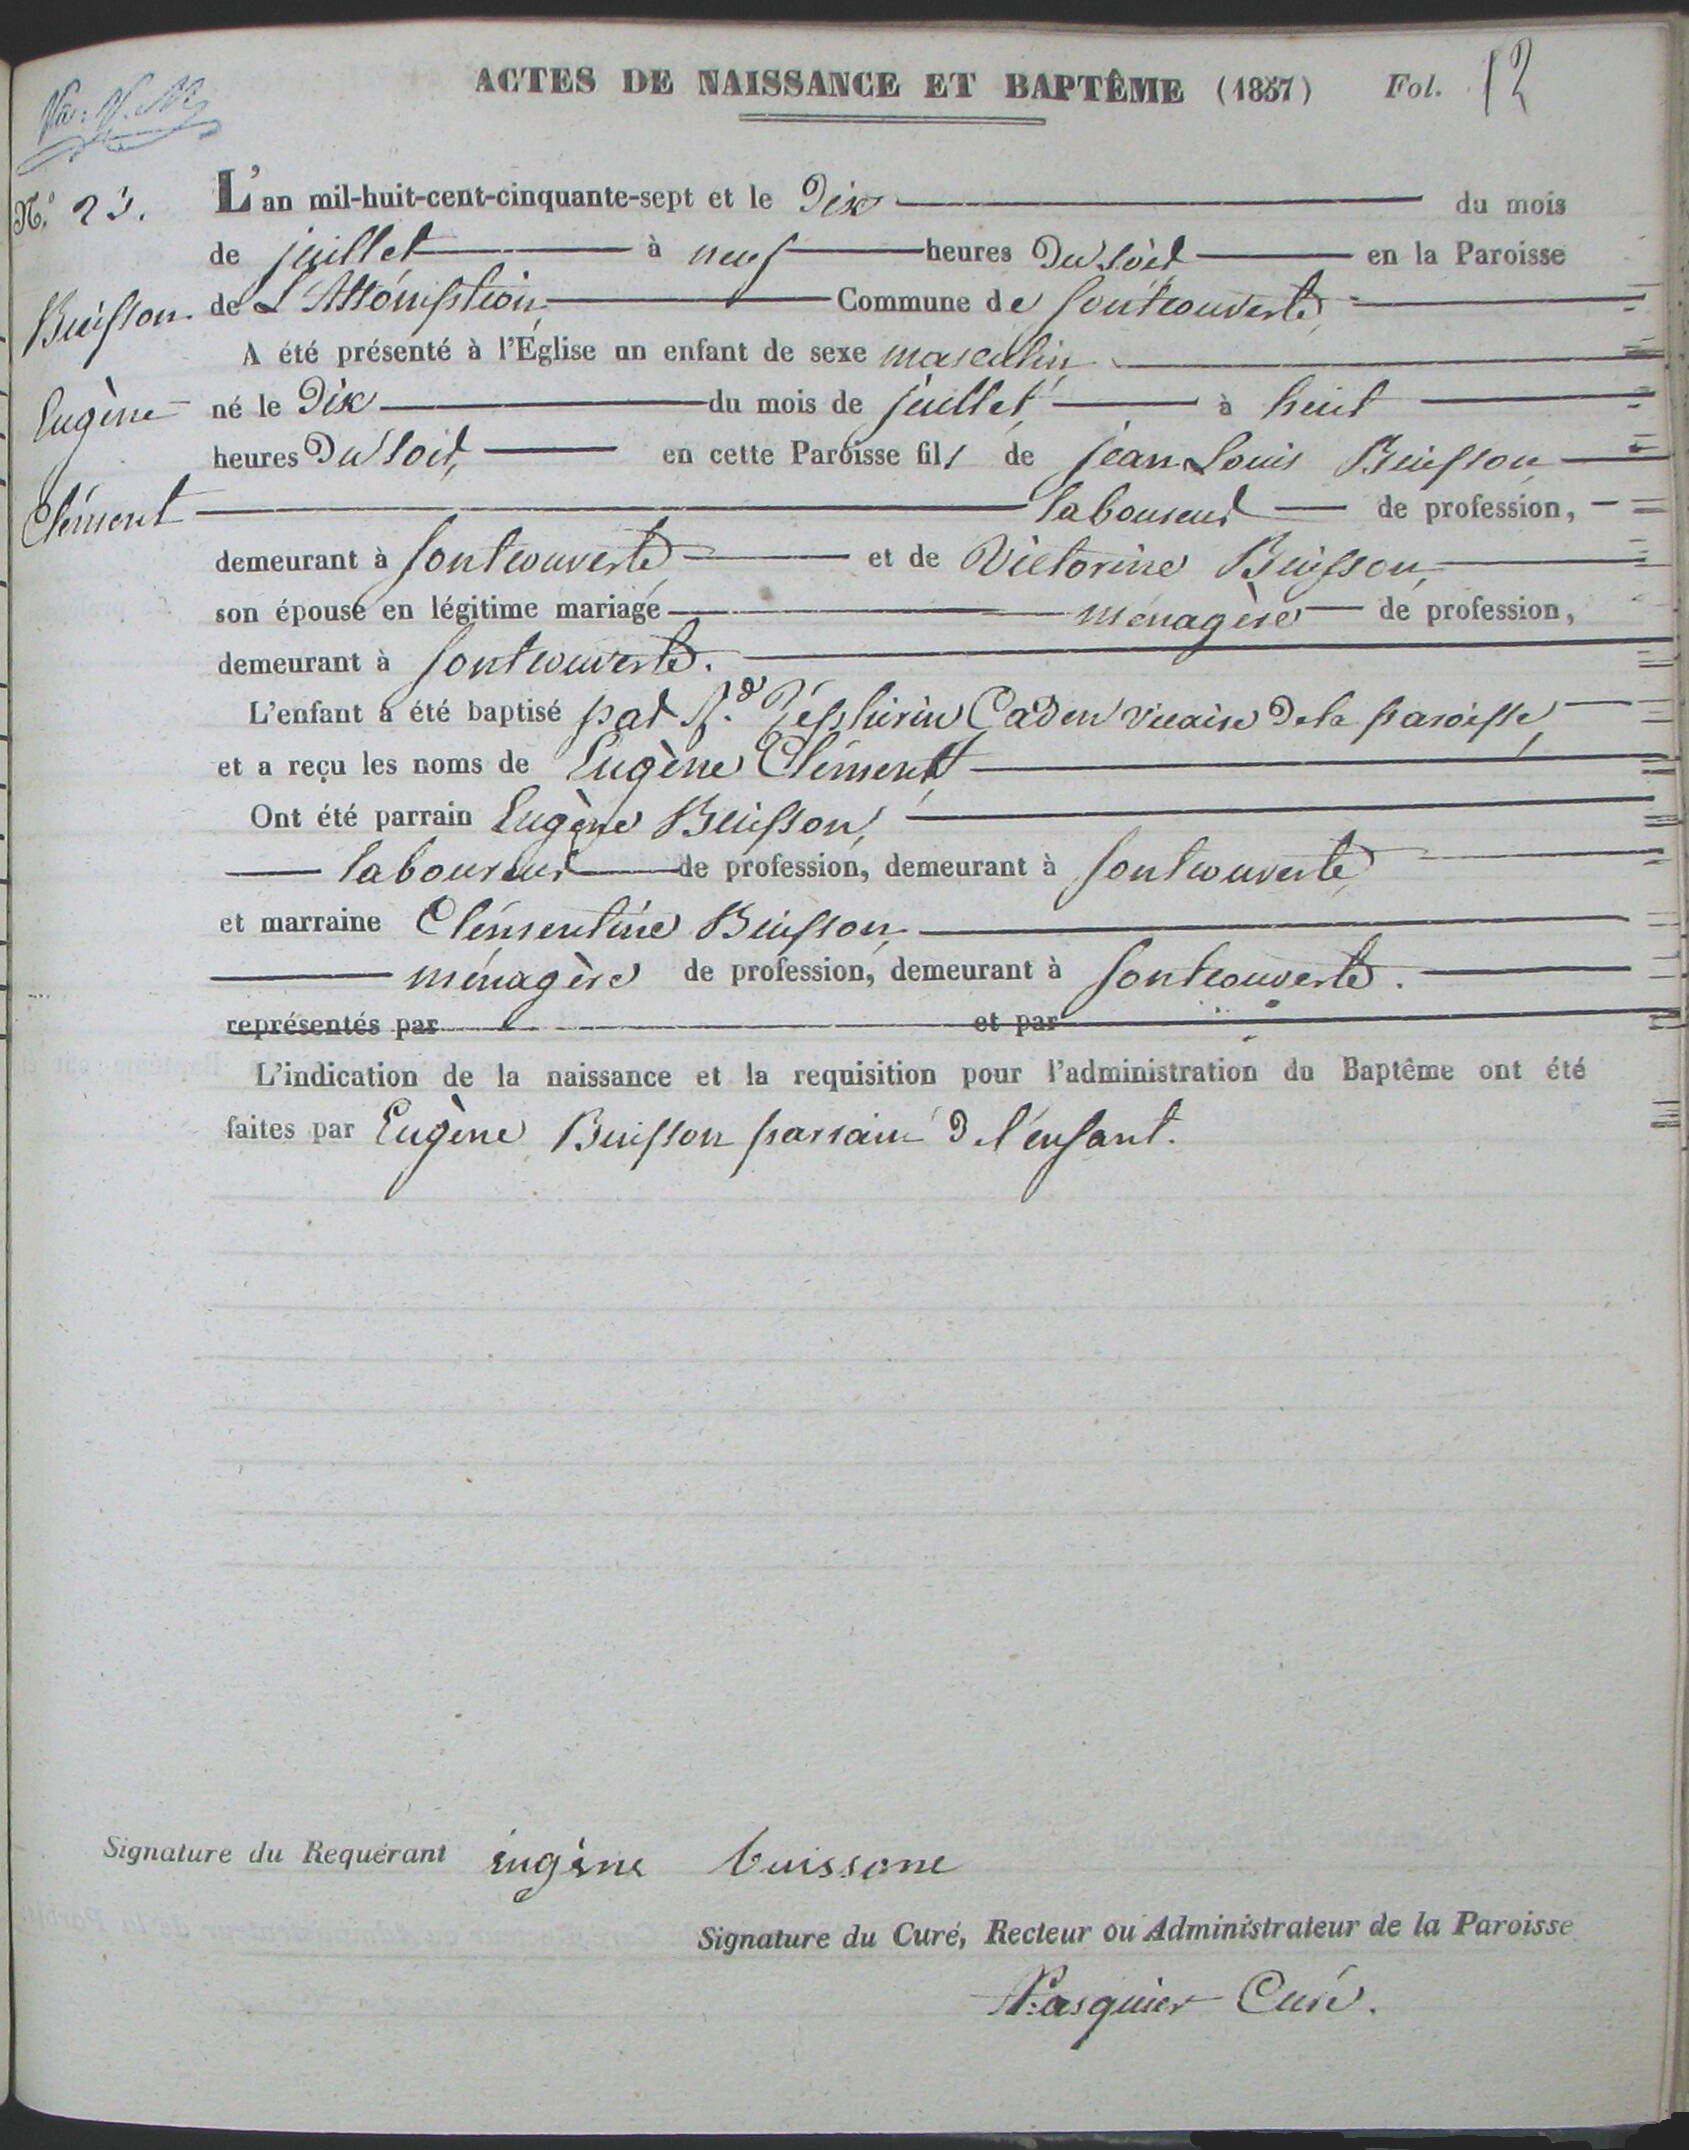 ACTES DE NAISSANCE ET BAPTÊME (1857) Fol. 12
N.° 23. L'an mil-huit-cent-cinquante-sept et le Dix du mois
de juillet à neuf heures Du soir en la Paroisse
Buisson. de L'Assomption, Commune de Fontcouverte,
A été présenté à l'Église un enfant de sexe masculin
Eugène né le Dix du mois de juillet, à huit
heures Du soir, en cette Paroisse fils de jean Louis Buisson
Clément laboureur de profession,
demeurant à fontcouverte, et de Victorine Buisson,
son épouse en légitime mariage ménagère de profession,
demeurant à fontcouverte.
L'enfant a été baptisé par R.d Zéphirin Caden vicaire De la paroisse,
et a reçu les noms de Eugène Clément,
Ont été parrain Eugène Buisson,
laboureur de profession, demeurant à fontcouverte,
et marraine Clémentine Buisson,
ménagère de profession, demeurant à fontcouverte.
représentés par et par
L'indication de la naissance et la requisition pour l'administration du Baptême ont été
faites par Eugène Buisson parrain D l'enfant.
Signature du Requérant eugène buissone
Signature du Curé, Recteur ou Administrateur de la Paroisse
Pasquier Curé.